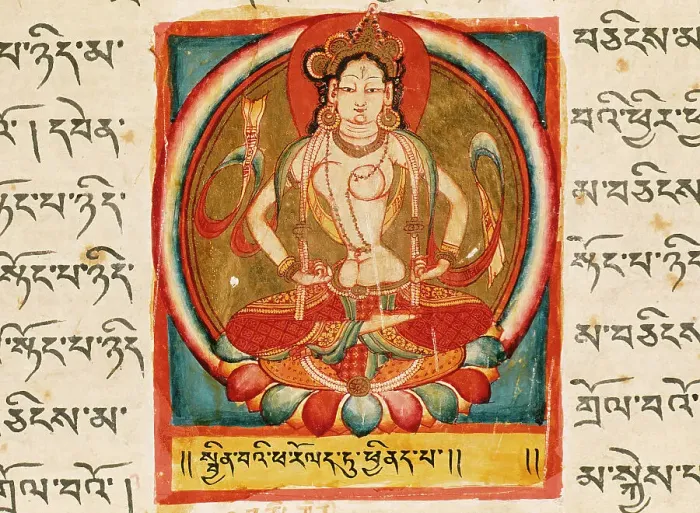 པ་ཉིད་མ་
འོ། དབེན་
སྟོང་པ་ཉིད་
སྟོང་པ་ཉིད་
སྟོང་པ་ཉིད
ཅིངས་མ་
གྲོལ་བའོ།
༎ སྦྱིན་བའི་ཕ་རོལད་ཏུ་ཕྱིནད་པ་༎ ༎
བཅིངས་མ
བའི་ཕྱིར་ཕྱི
མ་བཅིངས
སྟོང་པ་ཉིད
མ་བཅིངས
གྲོལ་བའོ
མ་སྐྱེས་པ